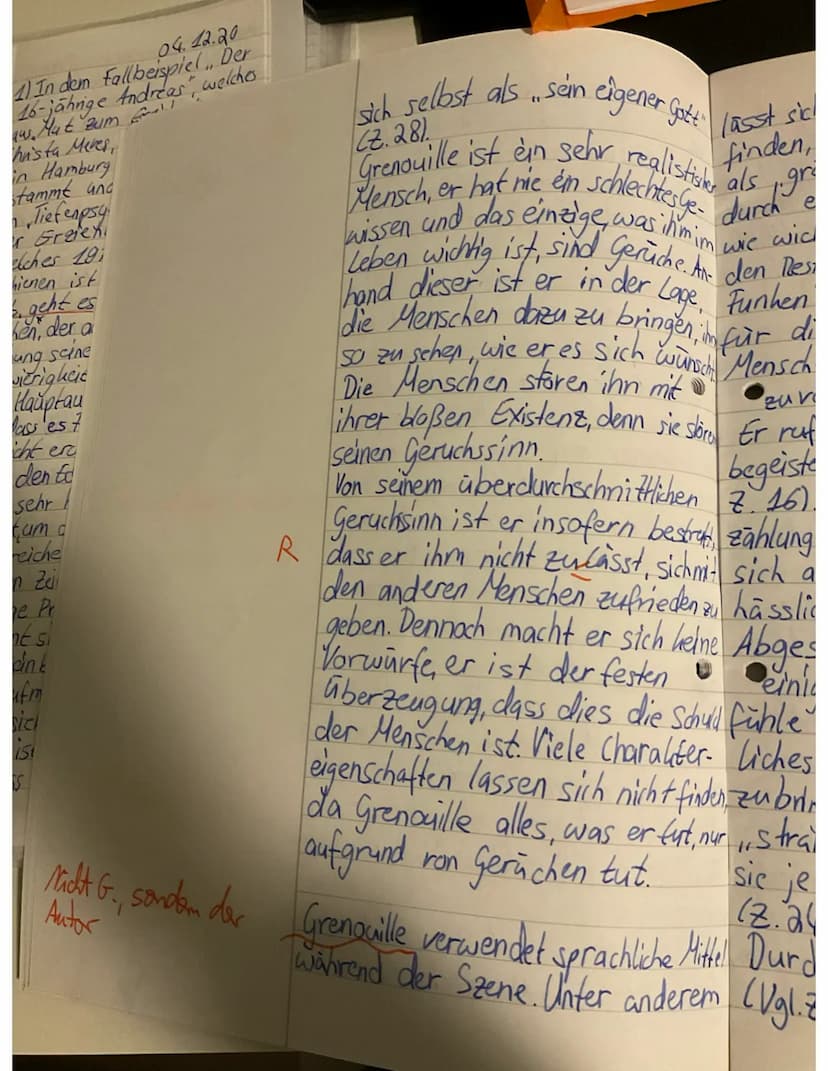 04.12.20
1) In dem Fallbeispiel „Der
16-jährige Andreas", welches
aus „Mut zum
Christa Meves,
in Hamburg
stammt und
Tiefenpsy
Erzieh
elches 19
hienen ist
geht es
hen, der a
ung seine
wierigkeit
Hauptau
dass es
cht erz
den Ed
sehr
reiche
sich selbst als „sein eigener Gott"
(Z. 28).
Grenouille ist ein sehr realistischer
Mensch, er hat nie ein schlechtes Ge-
wissen und das einzige, was ihm im
Leben wichtig ist, sind Gerüche. An-
hand dieser ist er in der Lage,
die Menschen dazu zu bringen, ihn
so zu sehen, wie er es sich wünscht.
Die Menschen stören ihn mit
ihrer bloßen Existenz, denn sie stören
seinen Geruchssinn.
Von seinem überdurchschnittlichen
Geruchsinn ist er insofern bestraft,
R
dass er ihm nicht zulässt, sich mit
den anderen Menschen zufrieden zu
geben. Dennoch macht er sich keine
Vorwürfe, er ist der festen
Überzeugung, dass dies die Schuld
der Menschen ist. Viele Charakter-
eigenschaften lassen sich nicht finden,
da Grenouille alles, was er tut, nur
aufgrund von Gerüchen tut.
Nicht G., sondern der
Autor
Grenouille verwendet sprachliche Mittel
während der Szene. Unter anderem
lässt sich
finden,
als „gr
durch e
wie wic
den Mes
Funken
für di
Mensch
zu v
Er ruf
begeiste
Z. 16)
zählung
sich a
hässlic
Abges
einig
fühle
liches
zubrin
„stra
sie je
(Z. 24
Durc
(Vgl. Z